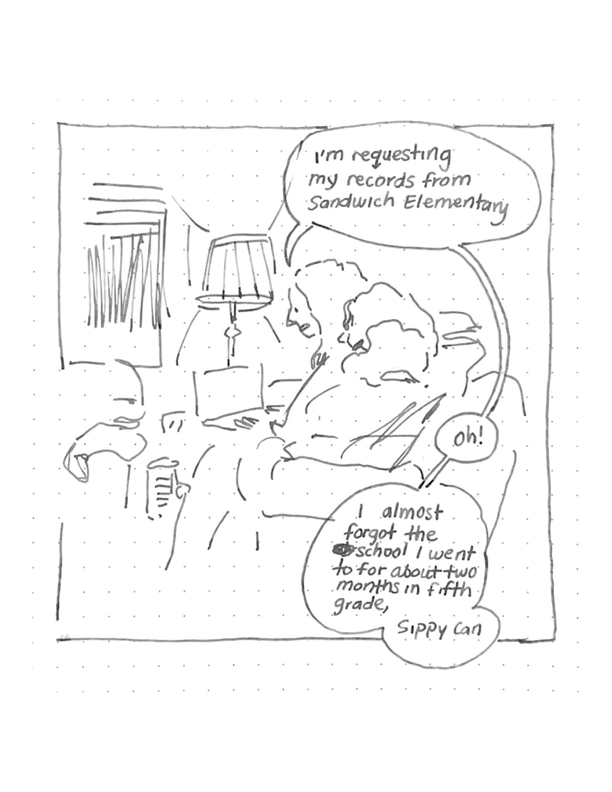 I'm requesting
my records from
Sandwich Elementary
oh!
I almost
forgot the
school I went
to for about two
months in fifth
grade,
Sippy Can